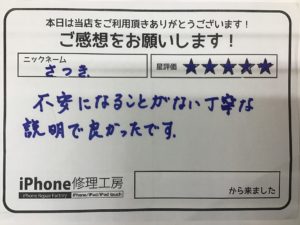 本日は当店をご利用頂きありがとうございます！
ご感想をお願いします！
ニックネーム
さつき
星評価 ★★★★★
不安になることがない丁寧な
説明で良かったです.
iPhone修理工房
iPhone Repair Factory iPhone/iPad/iPod touch
から来ました